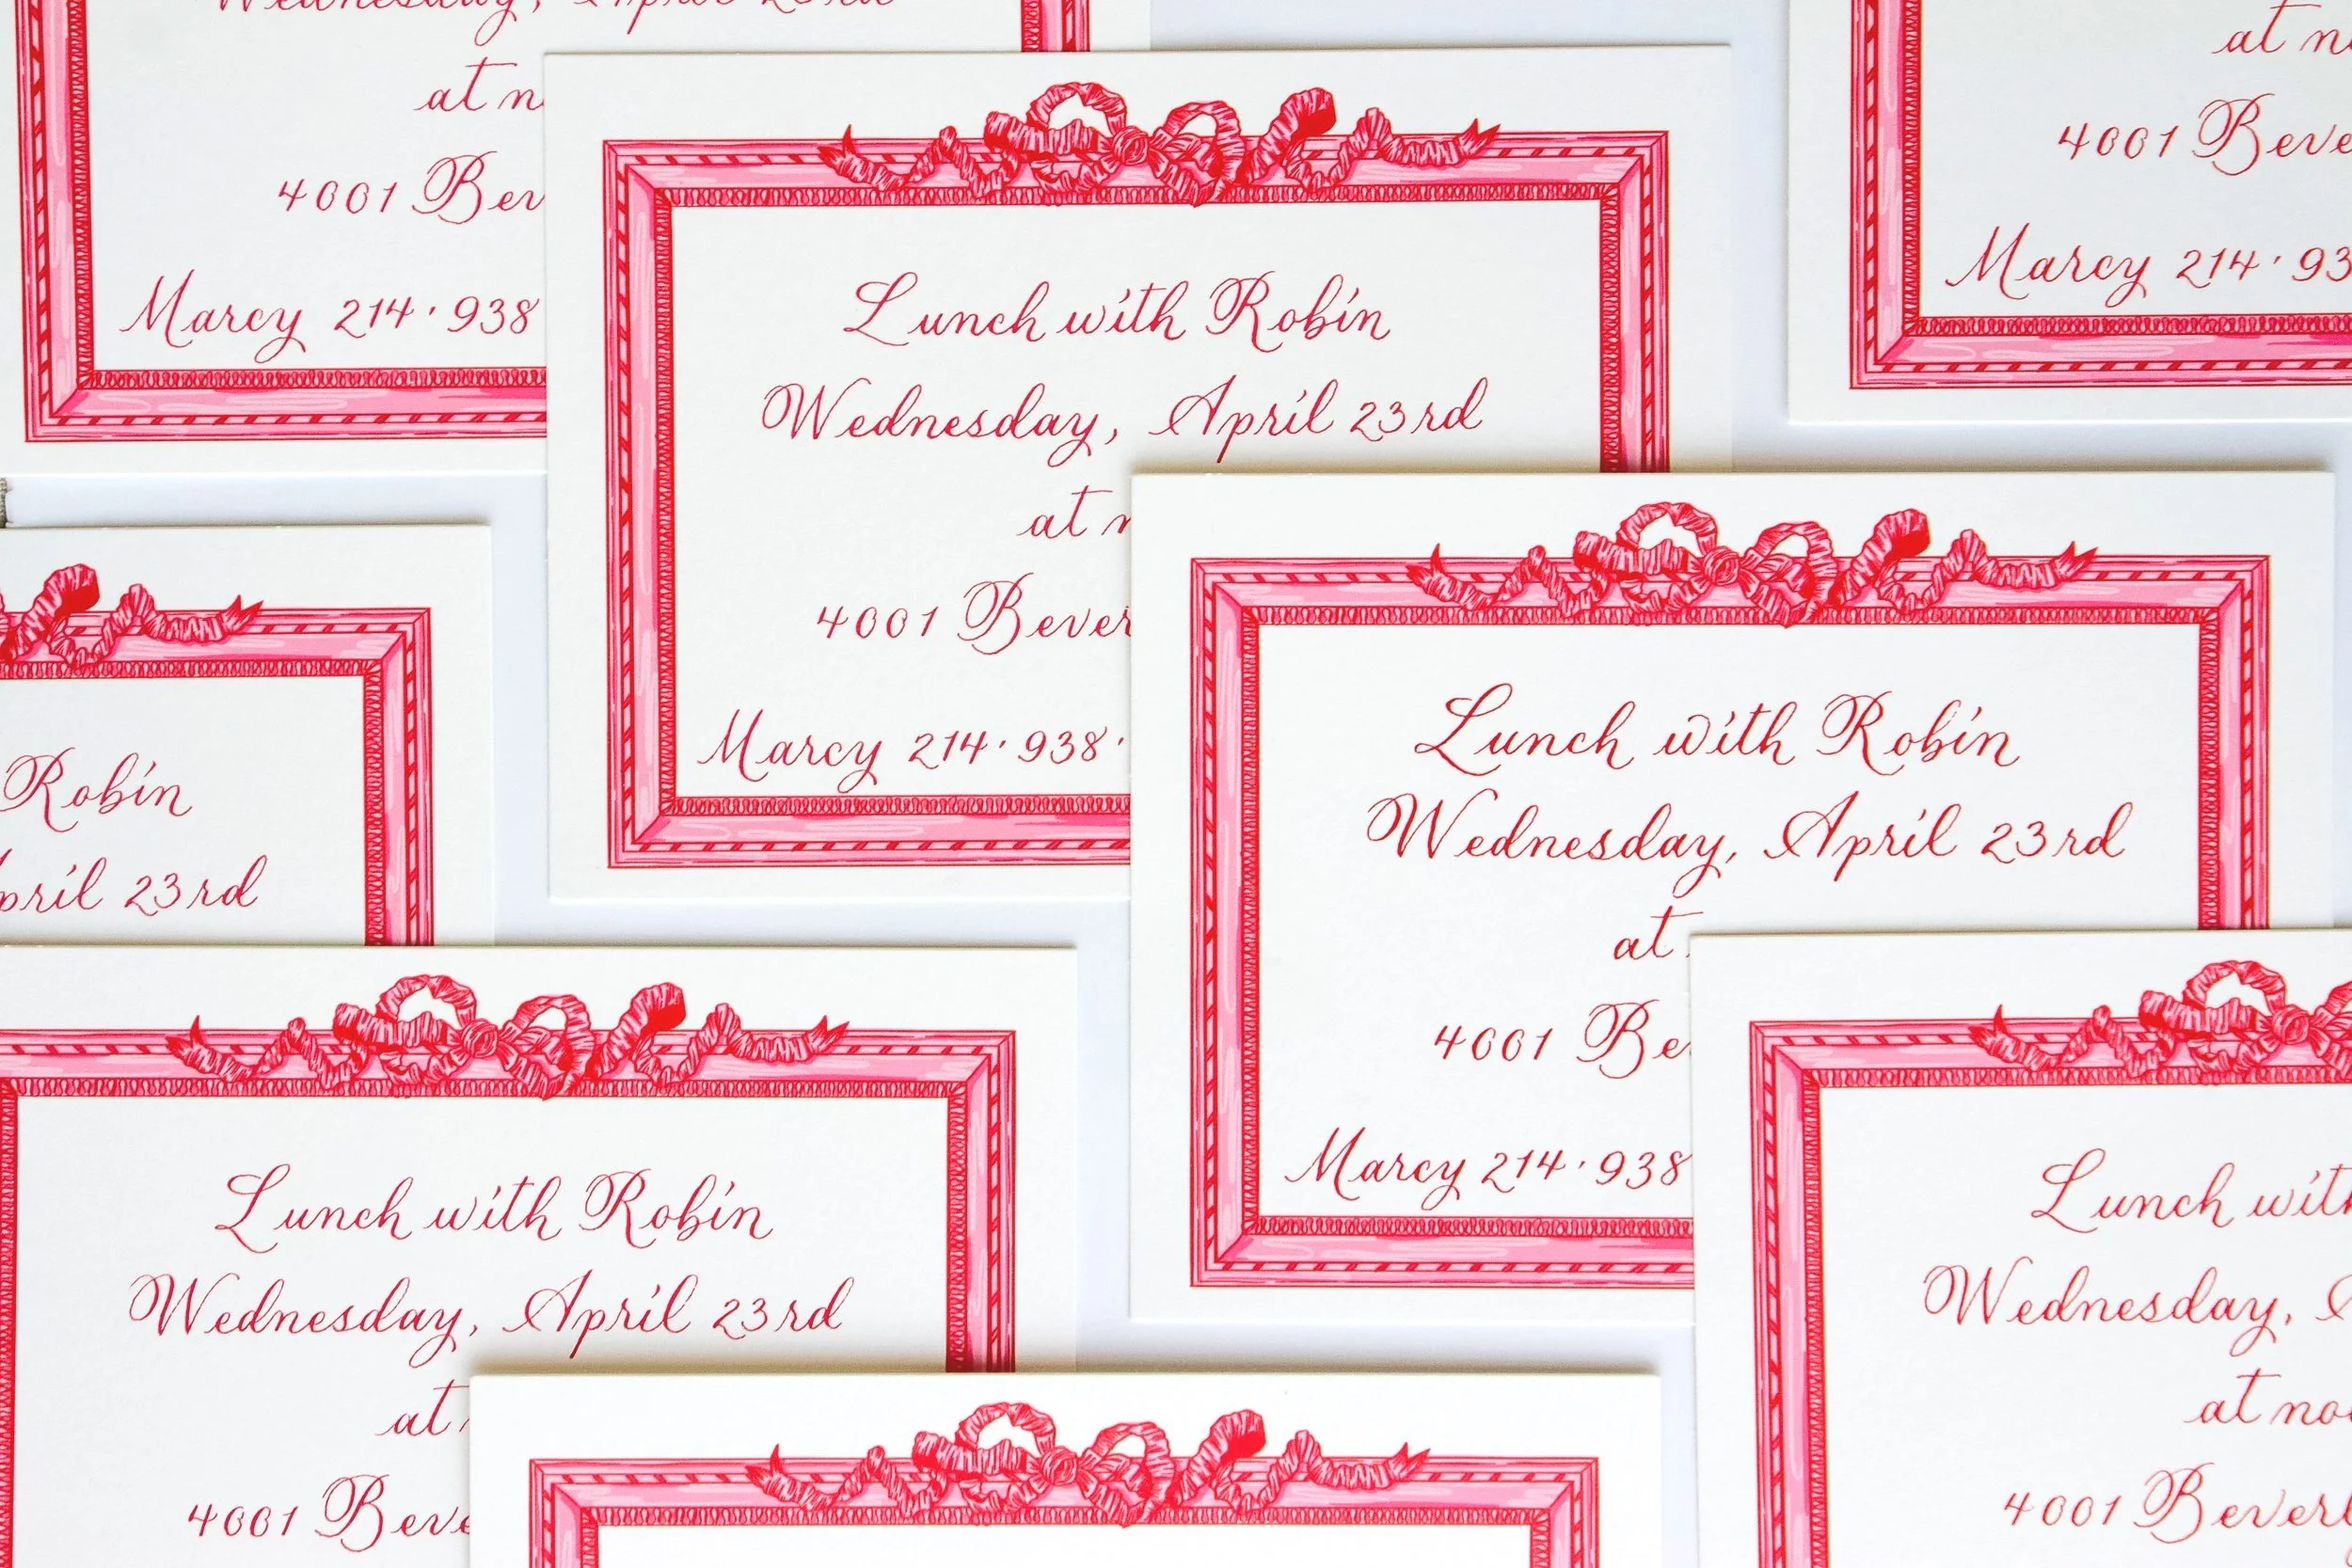 Wednesday, April 23rd
at n
4001 Bev
Marcy 214·938
at n
4001 Beve
Marcy 214·93
Lunch with Robin
Wednesday, April 23rd
at n
4001 Bever
Marcy 214·938·
Robin
April 23rd
Lunch with Robin
Wednesday, April 23rd
at
4001 Be
Marcy 214·938
Lunch with Robin
Wednesday, April 23rd
at
4001 Beve
Lunch with
Wednesday,
at noo
4001 Beverl